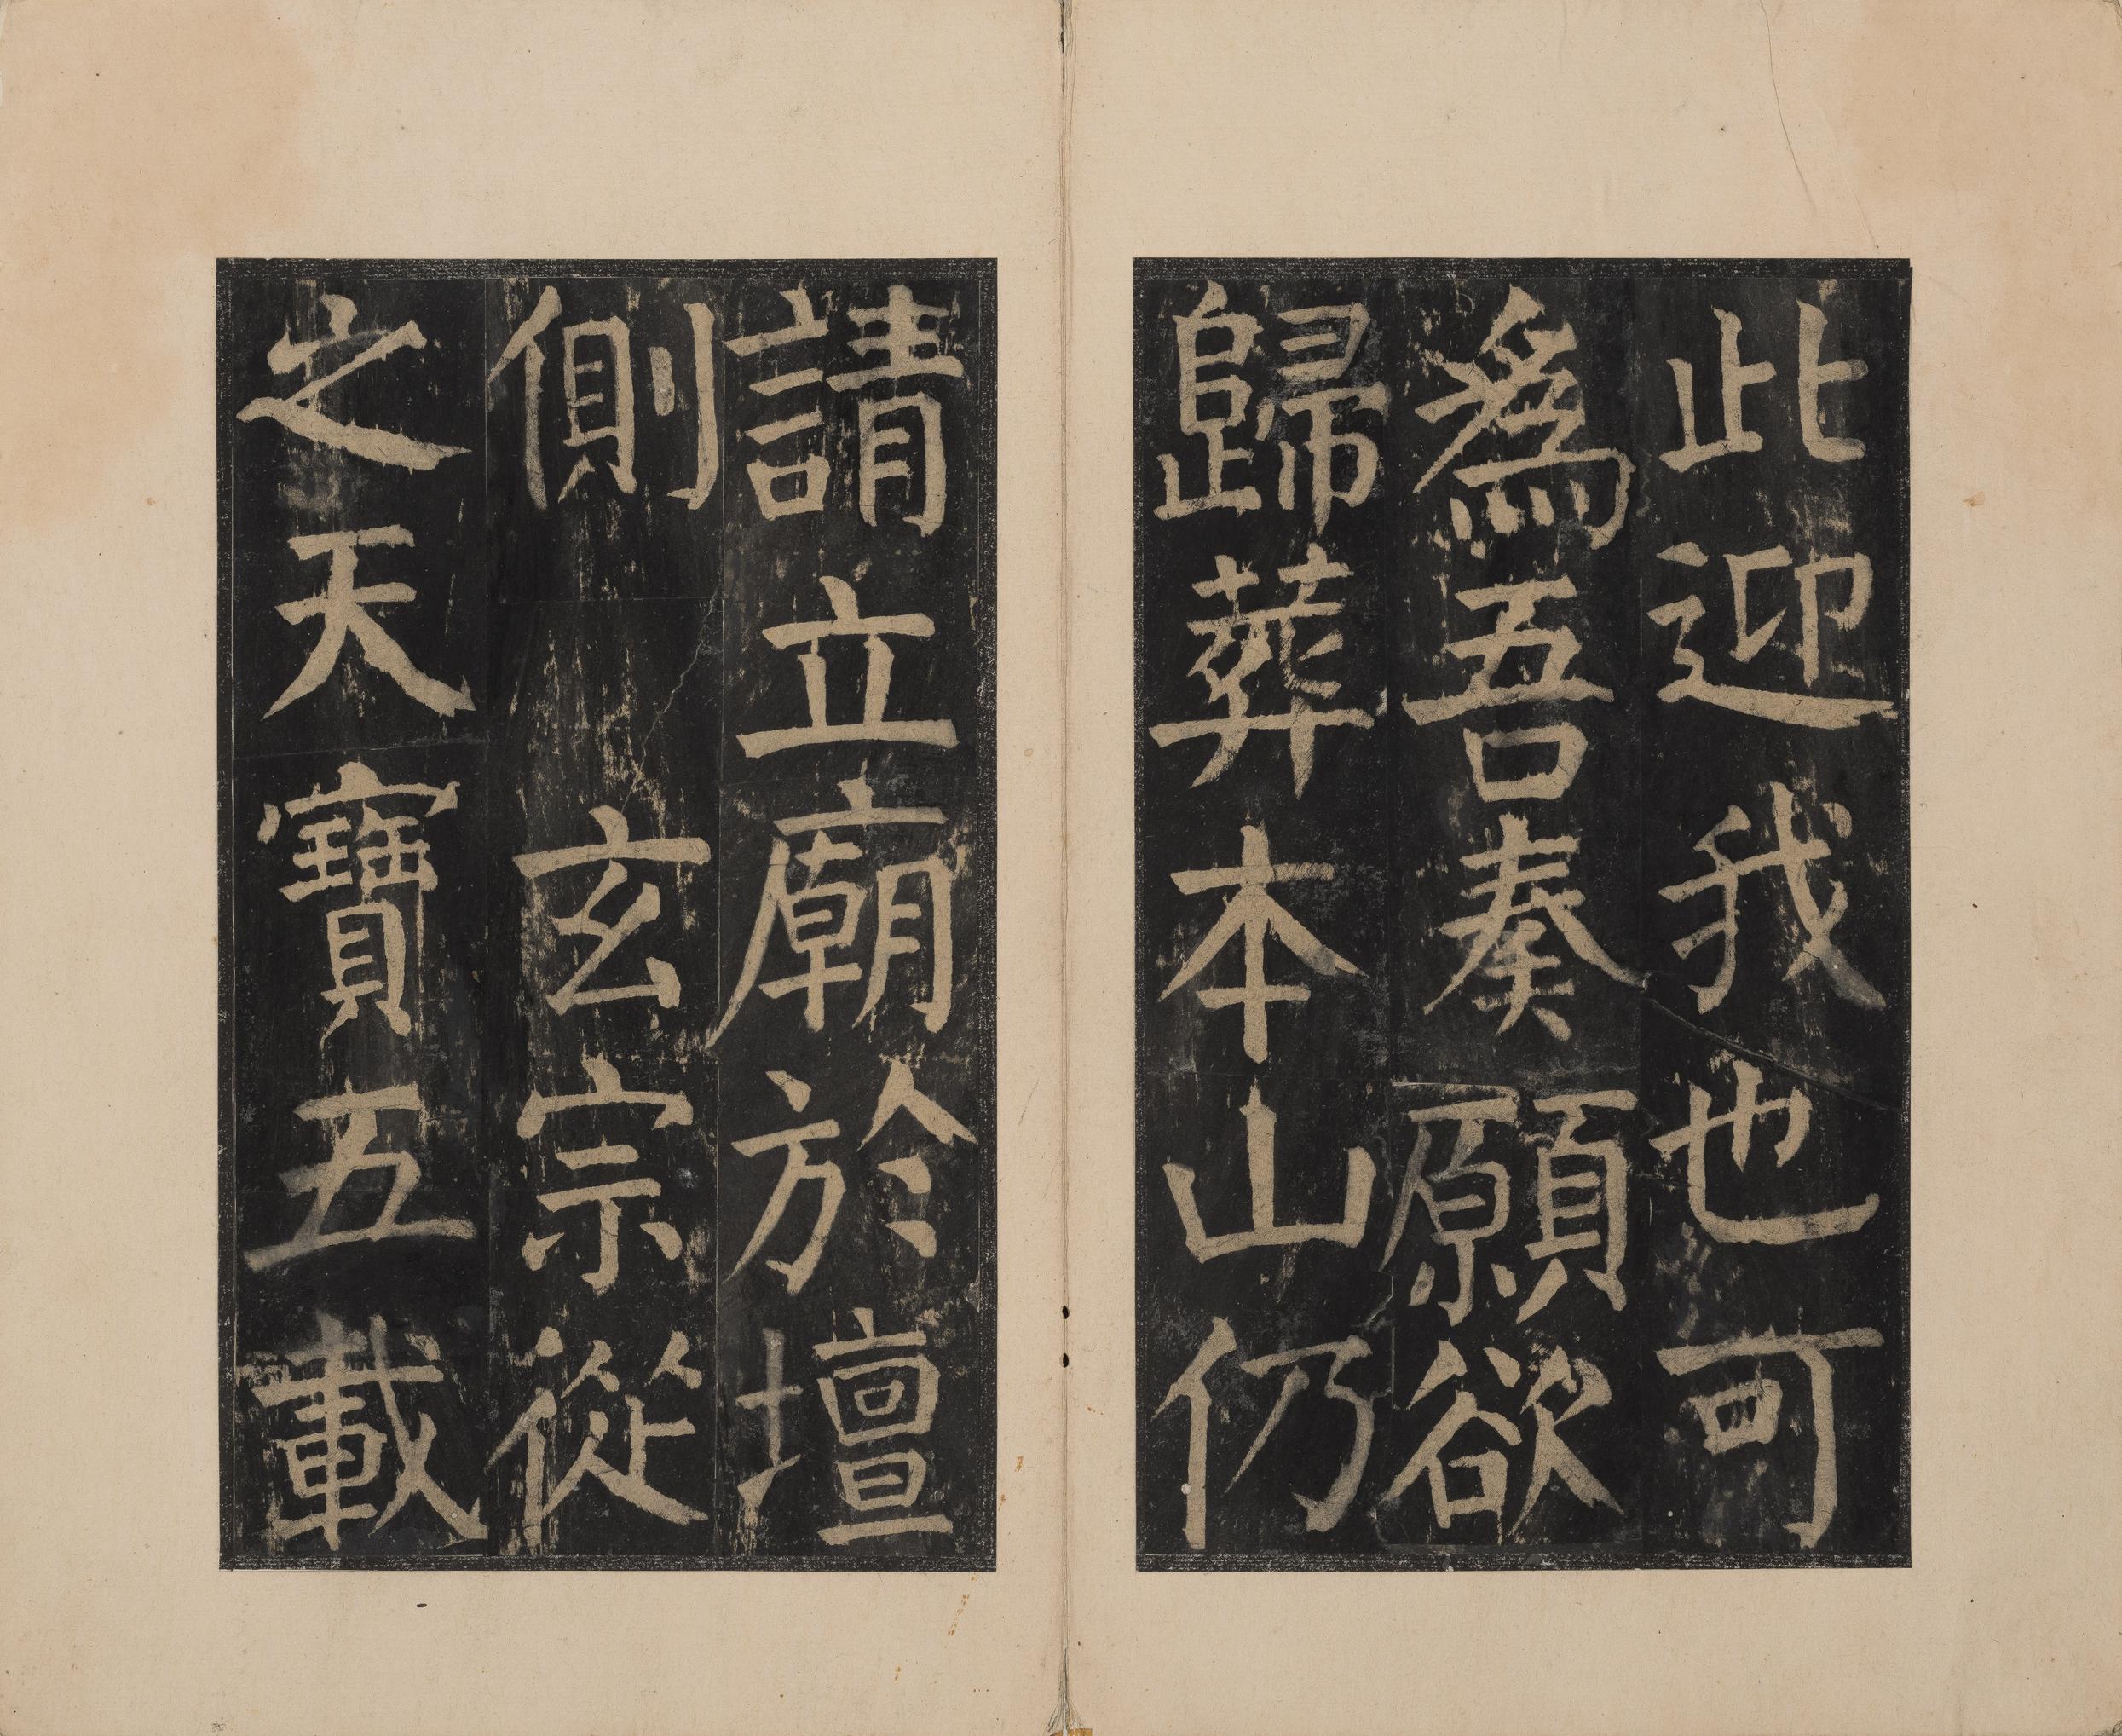 此迎我也可
為吾奏願欲
歸葬本山仍
請立廟於壇
側　玄宗從
之天寶五載